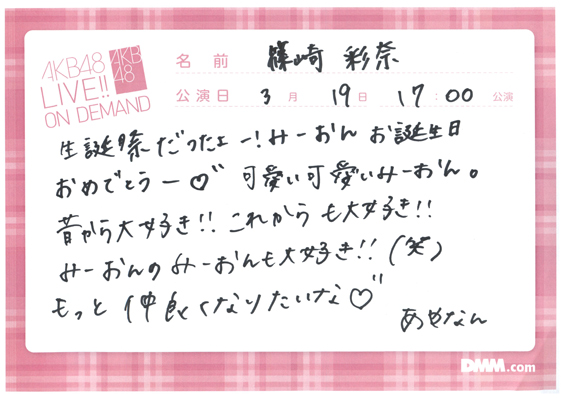 AKB48
LIVE!!
ON DEMAND
AKB
48
名前 篠崎 彩奈
公演日 3月 19日 17:00 公演
生誕祭だったよー!みーおん お誕生日
おめでとうー♡ 可愛い可愛いみーおん。
昔から大好き!! これからも大好き!!
みーおんのみーおんも大好き!! (笑)
もっと仲良くなりたいな♡
あやなん
DMM.com